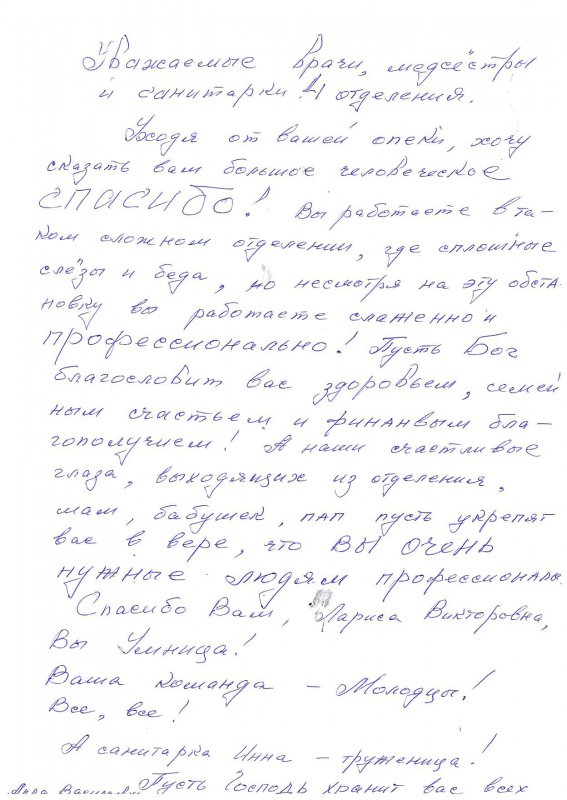 Уважаемые врачи, медсёстры
и санитарки 4 отделения.
Уходя от вашей опеки, хочу
сказать вам большое человеческое
СПАСИБО! Вы работаете в та-
ком сложном отделении, где сплошные
слёзы и беда, но несмотря на эту обста-
новку вы работаете слаженно и
профессионально! Пусть Бог
благословит вас здоровьем, семей
ным счастьем и финанвым бла-
гополучием! А наши счастливые
глаза, выходящих из отделения,
мам, бабушек, пап пусть укрепят
вас в вере, что ВЫ ОЧЕНЬ
нужные людям профессионалы.
Спасибо Вам, Лариса Викторовна,
Вы Умница!
Ваша команда – Молодцы!
Все, все!
А санитарка Инна – труженица!
Пусть Господь хранит вас всех